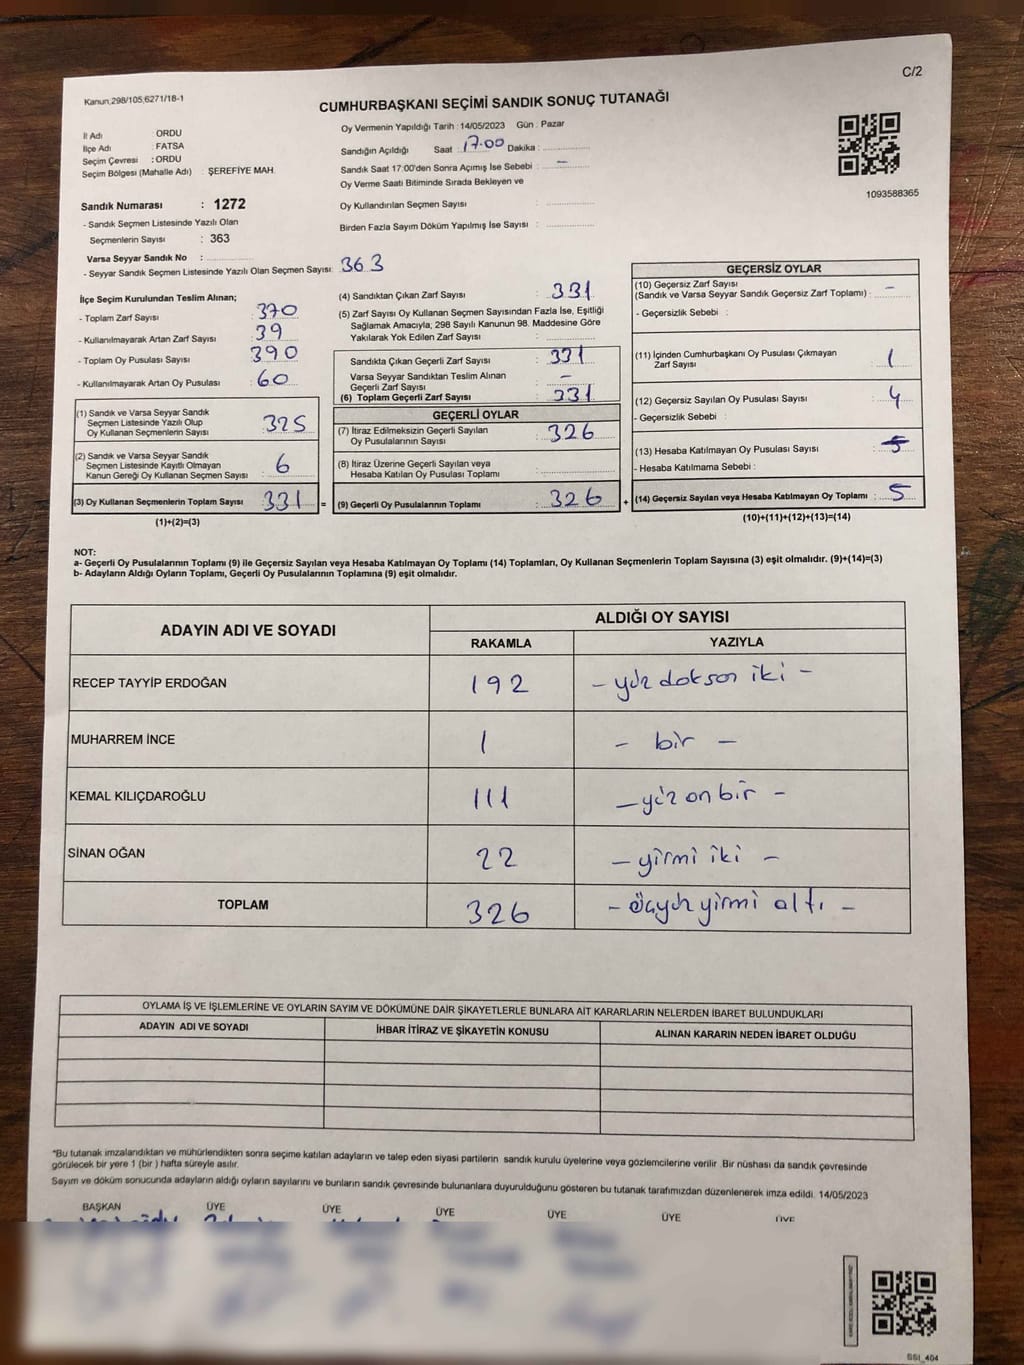 C/2
Kanun;298/105,6271/18-1
CUMHURBAŞKANI SEÇİMİ SANDIK SONUÇ TUTANAĞI
İl Adı : ORDU
İlçe Adı : FATSA
Seçim Çevresi : ORDU
Seçim Bölgesi (Mahalle Adı) : ŞEREFİYE MAH.
Sandık Numarası : 1272
- Sandık Seçmen Listesinde Yazılı Olan
Seçmenlerin Sayısı : 363
Varsa Seyyar Sandık No :
- Seyyar Sandık Seçmen Listesinde Yazılı Olan Seçmen Sayısı: 363
Oy Vermenin Yapıldığı Tarih : 14/05/2023 Gün : Pazar
Sandığın Açıldığı Saat : 17.00 Dakika :
Sandık Saat 17:00'den Sonra Açımış İse Sebebi : -
Oy Verme Saati Bitiminde Sırada Bekleyen ve
Oy Kullandırılan Seçmen Sayısı :
Birden Fazla Sayım Döküm Yapılmış İse Sayısı :
1093588365
İlçe Seçim Kurulundan Teslim Alınan;
- Toplam Zarf Sayısı : 370
- Kullanılmayarak Artan Zarf Sayısı : 39
- Toplam Oy Pusulası Sayısı : 390
- Kullanılmayarak Artan Oy Pusulası : 60
(1) Sandık ve Varsa Seyyar Sandık
Seçmen Listesinde Yazılı Olup
Oy Kullanan Seçmenlerin Sayısı : 325
(2) Sandık ve Varsa Seyyar Sandık
Seçmen Listesinde Kayıtlı Olmayan
Kanun Gereği Oy Kullanan Seçmen Sayısı : 6
(3) Oy Kullanan Seçmenlerin Toplam Sayısı : 331 =
(1)+(2)=(3)
(4) Sandıktan Çıkan Zarf Sayısı : 331
(5) Zarf Sayısı Oy Kullanan Seçmen Sayısından Fazla İse, Eşitliği
Sağlamak Amacıyla, 298 Sayılı Kanunun 98. Maddesine Göre
Yakılarak Yok Edilen Zarf Sayısı :
Sandıkta Çıkan Geçerli Zarf Sayısı : 331
Varsa Seyyar Sandıktan Teslim Alınan
Geçerli Zarf Sayısı : -
(6) Toplam Geçerli Zarf Sayısı : 331
GEÇERLİ OYLAR
(7) İtiraz Edilmeksizin Geçerli Sayılan
Oy Pusulalarının Sayısı : 326
(8) İtiraz Üzerine Geçerli Sayılan veya
Hesaba Katılan Oy Pusulası Toplamı :
(9) Geçerli Oy Pusulalarının Toplamı : 326 +
GEÇERSİZ OYLAR
(10) Geçersiz Zarf Sayısı
(Sandık ve Varsa Seyyar Sandık Geçersiz Zarf Toplamı) : -
- Geçersizlik Sebebi :
(11) İçinden Cumhurbaşkanı Oy Pusulası Çıkmayan
Zarf Sayısı : 1
(12) Geçersiz Sayılan Oy Pusulası Sayısı : 4
- Geçersizlik Sebebi :
(13) Hesaba Katılmayan Oy Pusulası Sayısı : 5
- Hesaba Katılmama Sebebi :
(14) Geçersiz Sayılan veya Hesaba Katılmayan Oy Toplamı : 5
(10)+(11)+(12)+(13)=(14)
NOT:
a- Geçerli Oy Pusulalarının Toplamı (9) ile Geçersiz Sayılan veya Hesaba Katılmayan Oy Toplamı (14) Toplamları, Oy Kullanan Seçmenlerin Toplam Sayısına (3) eşit olmalıdır. (9)+(14)=(3)
b- Adayların Aldığı Oyların Toplamı, Geçerli Oy Pusulalarının Toplamına (9) eşit olmalıdır.
ADAYIN ADI VE SOYADI ALDIĞI OY SAYISI
RAKAMLA YAZIYLA
RECEP TAYYİP ERDOĞAN 192 - yüz doksan iki -
MUHARREM İNCE 1 - bir -
KEMAL KILIÇDAROĞLU 111 - yüz on bir -
SİNAN OĞAN 22 - yirmi iki -
TOPLAM 326 - üçyüz yirmi altı -
OYLAMA İŞ VE İŞLEMLERİNE VE OYLARIN SAYIM VE DÖKÜMÜNE DAİR ŞİKAYETLERLE BUNLARA AİT KARARLARIN NELERDEN İBARET BULUNDUKLARI
ADAYIN ADI VE SOYADI İHBAR İTİRAZ VE ŞİKAYETİN KONUSU ALINAN KARARIN NEDEN İBARET OLDUĞU
*Bu tutanak imzalandıktan ve mühürlendikten sonra seçime katılan adayların ve talep eden siyasi partilerin sandık kurulu üyelerine veya gözlemcilerine verilir .Bir nüshası da sandık çevresinde
görülecek bir yere 1 (bir ) hafta süreyle asılır.
Sayım ve döküm sonucunda adayların aldığı oyların sayılarını ve bunların sandık çevresinde bulunanlara duyurulduğunu gösteren bu tutanak tarafımızdan düzenlenerek imza edildi. 14/05/2023
BAŞKAN ÜYE ÜYE ÜYE ÜYE ÜYE ÜYE
SSI_404